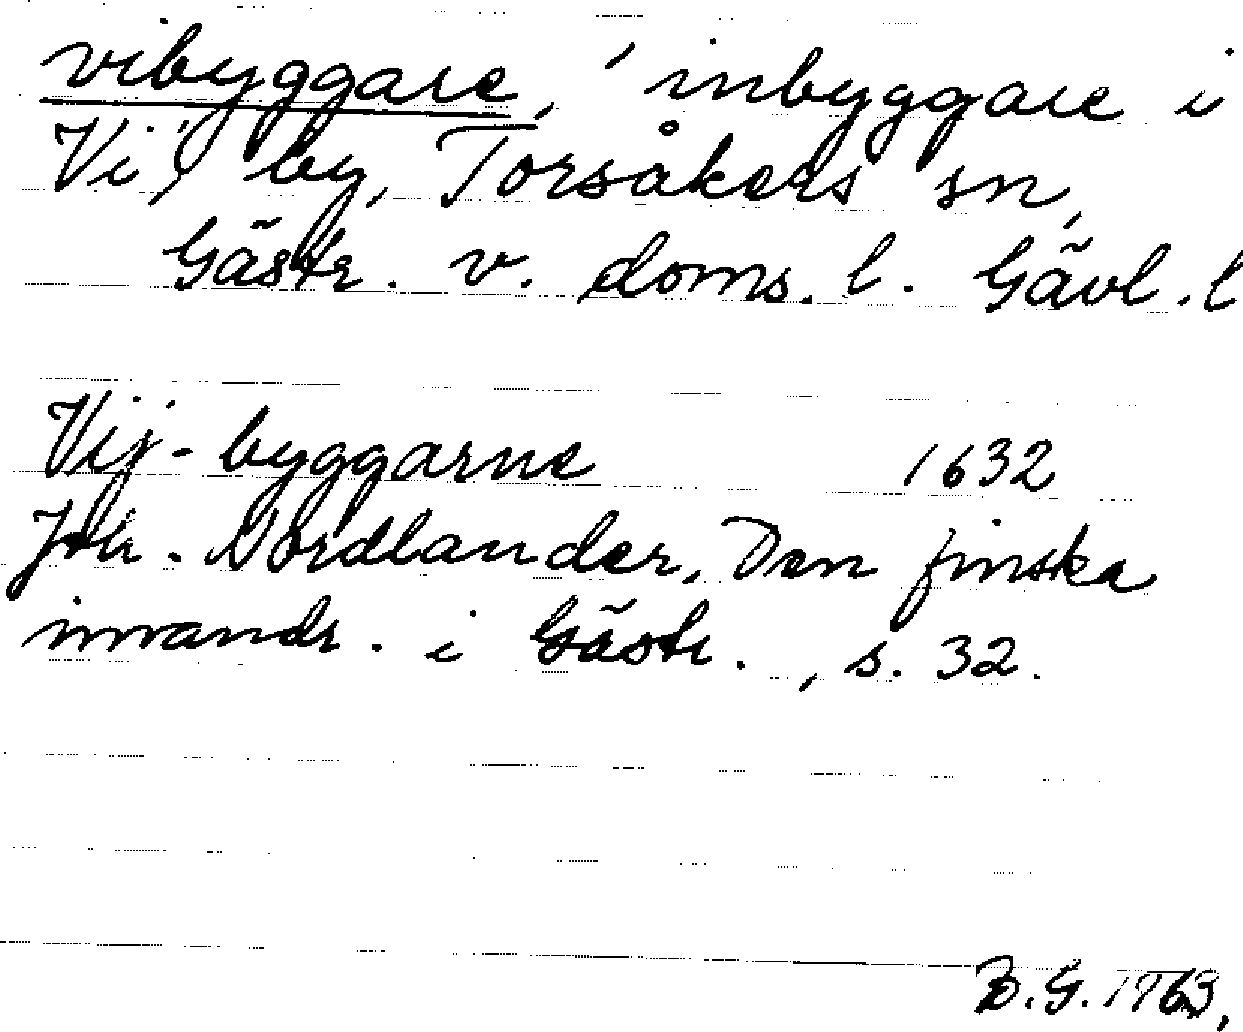 vibyggare, 'inbyggare i
Vi', by, Torsåkers sn,
Gästr. v. doms. l. Gävl. l
Vij-byggarne 1632
Joh. Nordlander, Den finska
invandr. i Gästr., s. 32.
B.G. 1763,